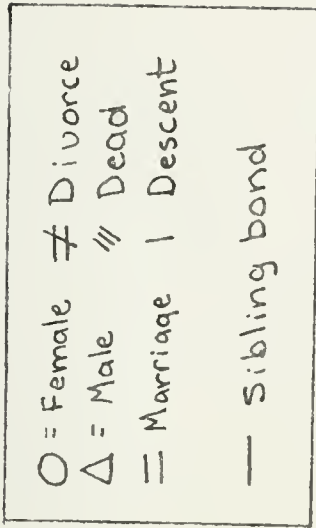 O = Female ≠ Divorce
△ = Male /// Dead
= Marriage | Descent
— Sibling bond